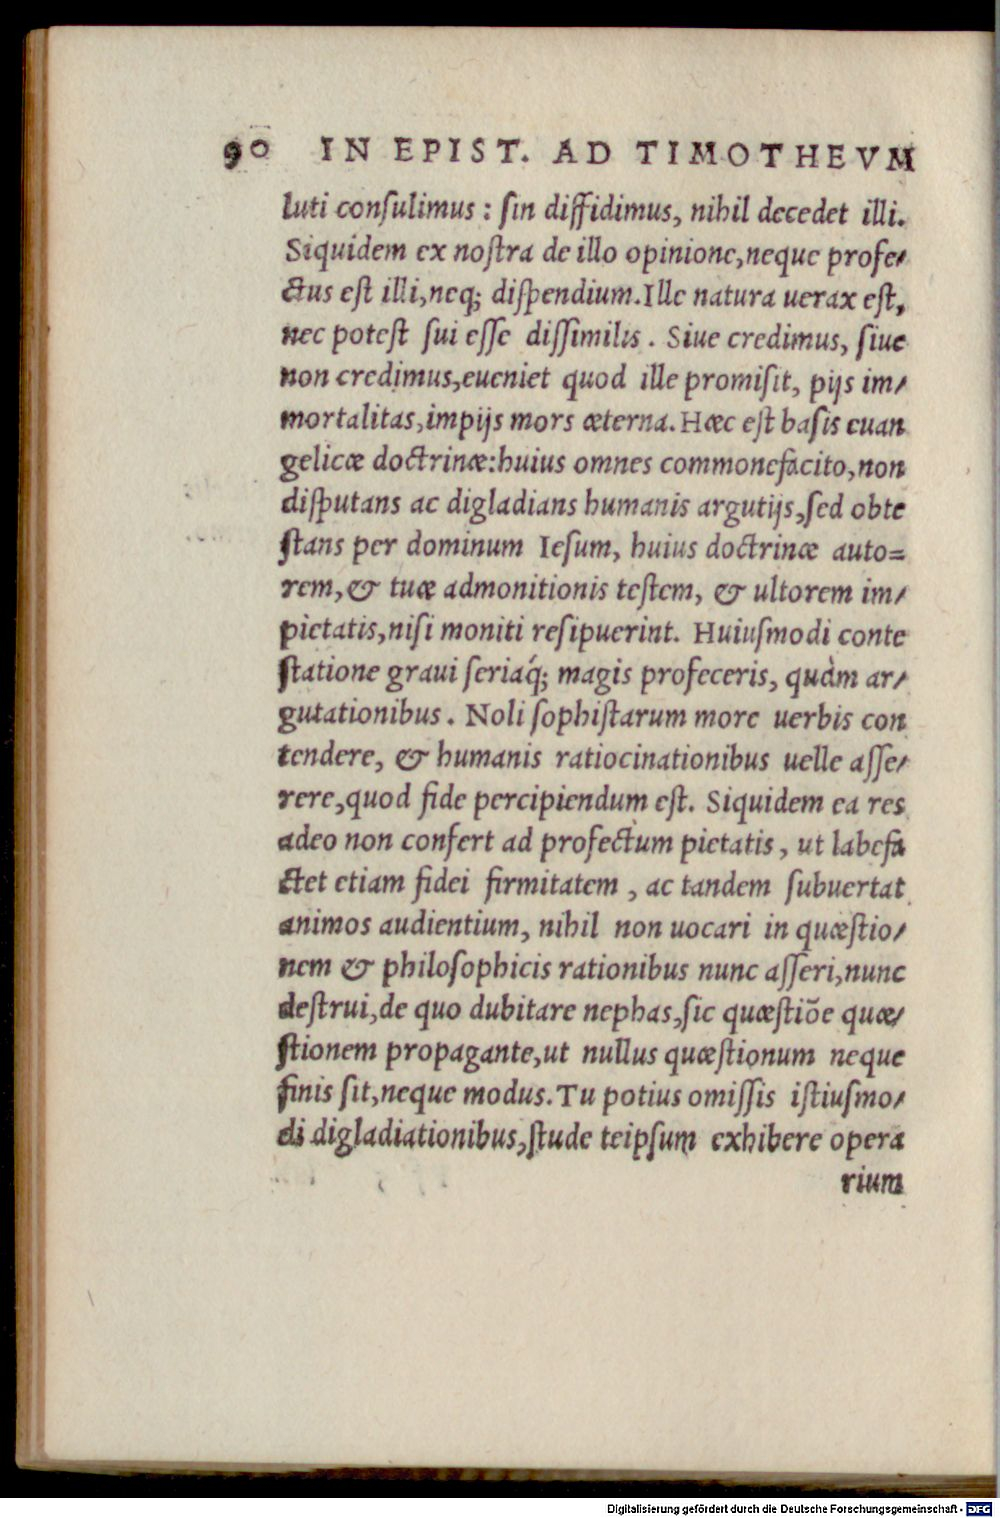 90 IN EPIST. AD TIMOTHEVM
luti conſulimus : ſin diffidimus, nihil decedet illi.
Siquidem ex noſtra de illo opinione, neque profe-
ctus eſt illi, neq; diſpendium. Ille natura uerax eſt,
nec poteſt ſui eſſe diſſimilis . Siue credimus, ſiue
non credimus, eueniet quod ille promiſit, pijs im-
mortalitas, impijs mors æterna. Hæc eſt baſis euan
gelicæ doctrinæ: huius omnes commonefacito, non
diſputans ac digladians humanis argutijs, ſed obte
ſtans per dominum Ieſum, huius doctrinæ auto=
rem, & tuæ admonitionis teſtem, & ultorem im-
pietatis, niſi moniti reſipuerint. Huiuſmodi conte
ſtatione graui ſeriaq́; magis profeceris, quàm ar-
gutationibus . Noli ſophiſtarum more uerbis con
tendere, & humanis ratiocinationibus uelle aſſe-
rere, quod fide percipiendum eſt. Siquidem ea res
adeo non confert ad profectum pietatis, ut labefa
ctet etiam fidei firmitatem , ac tandem ſubuertat
animos audientium, nihil non uocari in quæſtio-
nem & philoſophicis rationibus nunc aſſeri, nunc
deſtrui, de quo dubitare nephas, ſic quæſtiōe quæ-
ſtionem propagante, ut nullus quæſtionum neque
finis ſit, neque modus. Tu potius omiſſis iſtiuſmo-
di digladiationibus, ſtude teipſum exhibere opera
rium
Digitalisierung gefördert durch die Deutsche Forschungsgemeinschaft - DFG